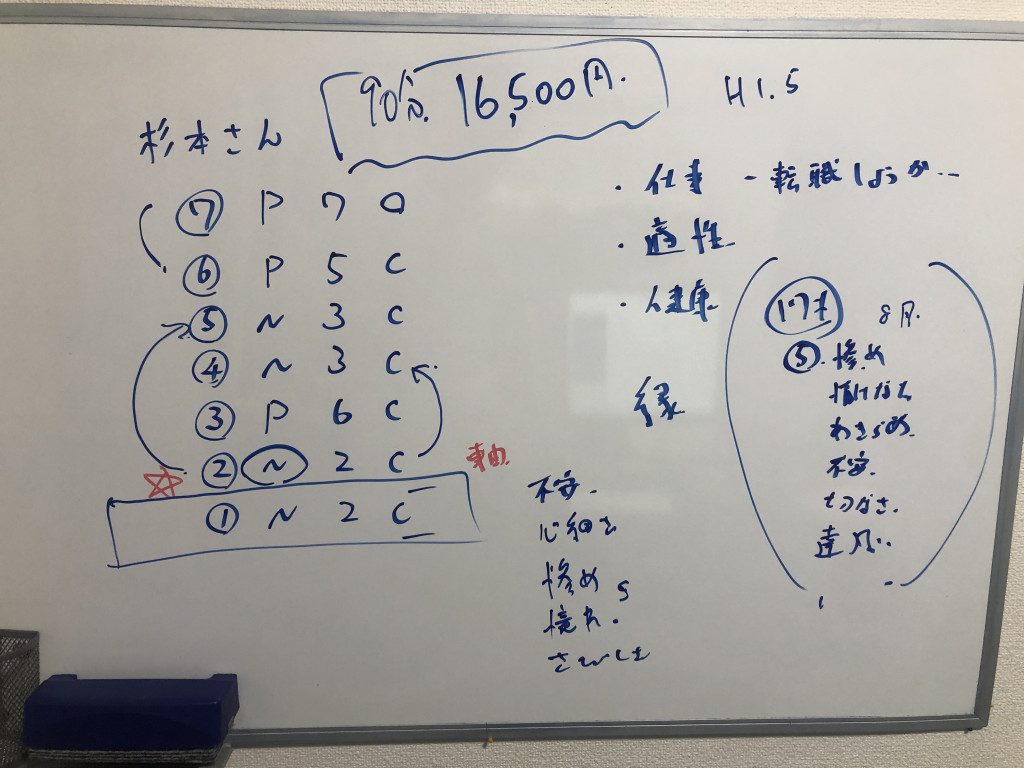 90分. 16,500円.
H1.5
杉本さん
⑦ P 7 O
⑥ P 5 C
⑤ N 3 C
④ N 3 C
③ P 6 C
② N 2 C
① N 2 C
・仕事 - 転職しようか...
・適性
・健康
縁
不安.
心細さ
惨めさ
さびしさ
17才 8月.
⑤. 惨め
情けなさ
あきらめ.
不安.
せつなさ.